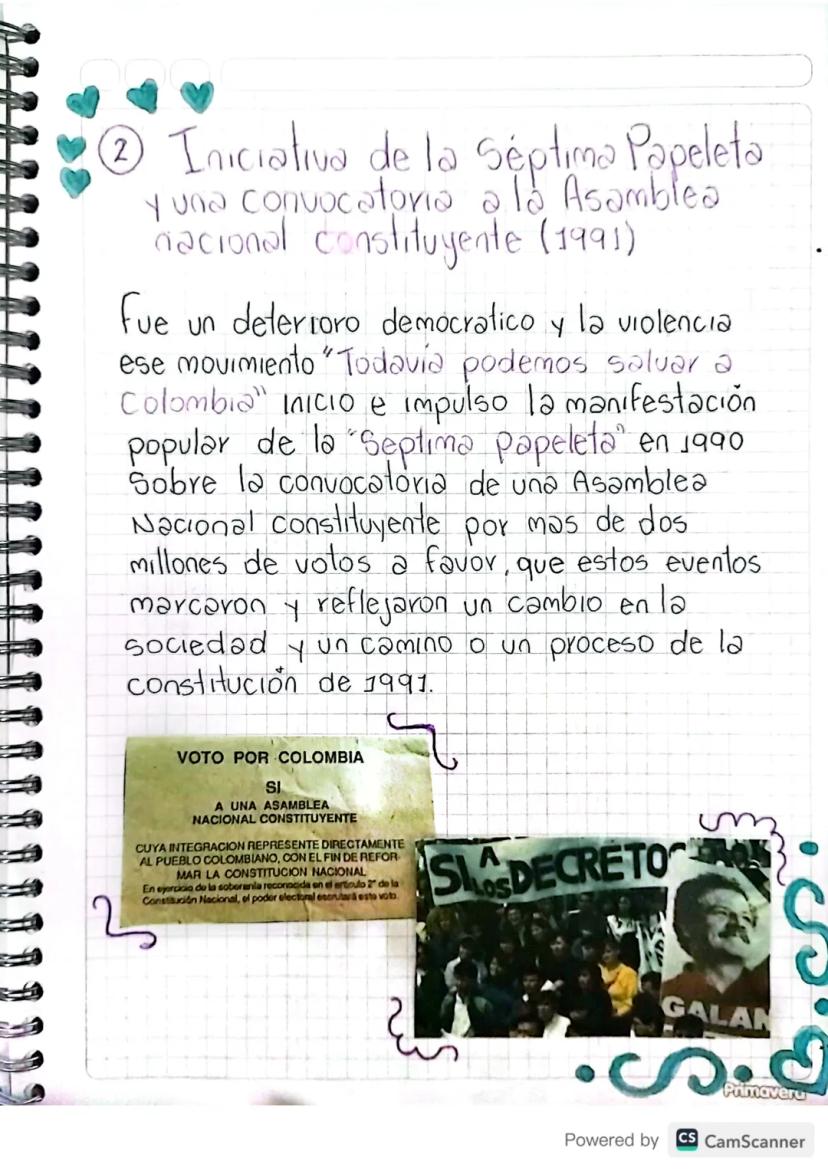 2 Iniciativa de la Séptima Papeleta
y una convocatoria a la Asamblea
nacional constituyente (1991)
Fue un deterioro democratico y la violencia
ese movimiento "Todavía podemos salvar a
Colombia" inicio e impulso la manifestación
popular de la "Septima papeleta" en 1990
Sobre la convocatoria de una Asamblea
Nacional constituyente por mas de dos
millones de votos a favor, que estos eventos
marcaron y reflejaron un cambio en la
sociedad y un camino o un proceso de la
constitución de 1991.
VOTO POR COLOMBIA
SI
A UNA ASAMBLEA
NACIONAL CONSTITUYENTE
CUYA INTEGRACION REPRESENTE DIRECTAMENTE
AL PUEBLO COLOMBIANO, CON EL FIN DE REFOR-
MAR LA CONSTITUCION NACIONAL
En ejercicio de la soberanía reconocida en el artículo 2° de la
Constitución Nacional, el poder electoral escrutará este voto.
SI A LOS DECRETO
GALAN
Primavera
Powered by CS CamScanner